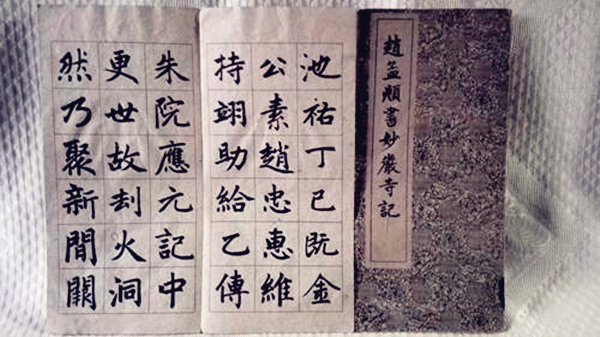 趙孟頫書妙嚴寺記
池祐丁已既金
公素趙忠惠維
持翊助給乙傳
朱院應元記中
更世故刦火洞
然乃聚新間關